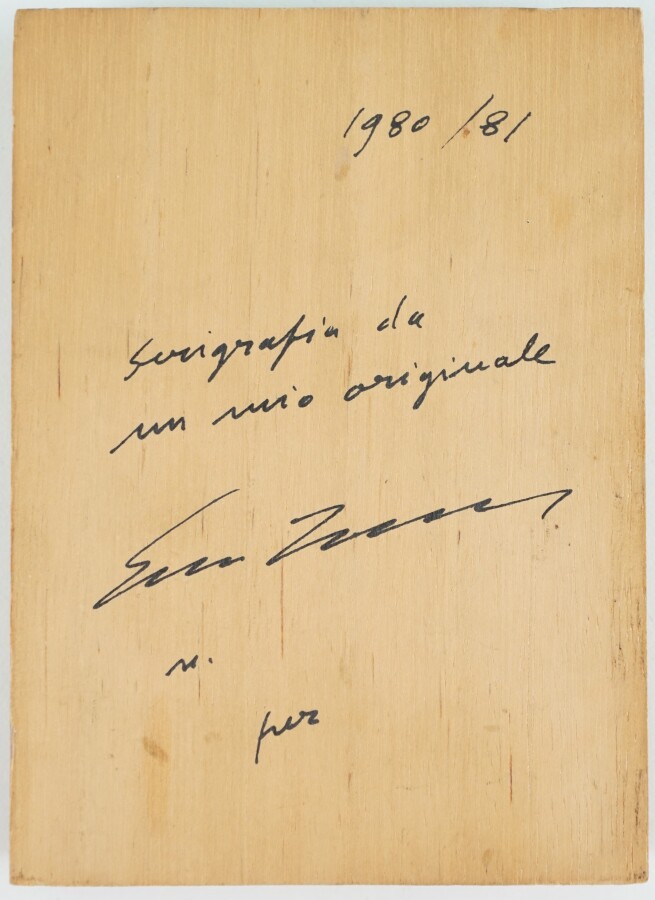 1980/81
Serigrafia da
un mio originale
n.
per